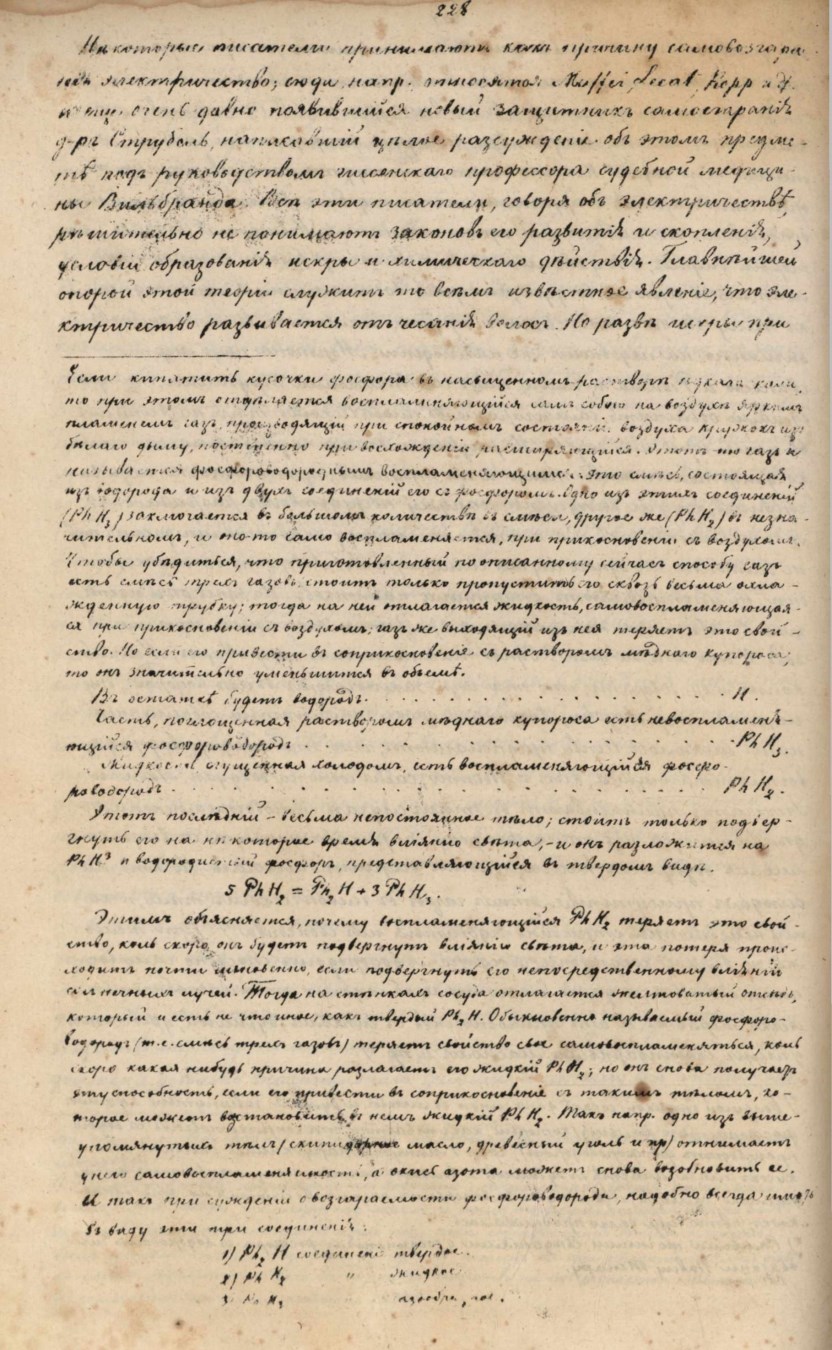 228
Нѣкоторые писатели принимаютъ какъ причину самовозгара-
нія электричество; сюда, напр. относятся Maffei, Lecat, Kopp и др.
и еще очень давно появившійся новый защитникъ самосгаранія
д-ръ Струбель, написавшій цѣлое разсужденіе объ этомъ предме-
тѣ подъ руководствомъ гисенскаго профессора судебной медици-
ны Вильбранда. Всѣ эти писатели, говоря объ электричествѣ,
рѣшительно не понимаютъ законовъ его развитія и скопленія,
условій образованія искры и химическаго дѣйствія. Главнѣйшей
опорой этой теоріи служитъ то всѣмъ извѣстное явленіе, что эле-
ктричество развивается отъ чесанія волосъ. Но развѣ искры при
Если кипятить кусочки фосфора въ насыщенномъ растворѣ ѣдкаго кали,
то при этомъ отдѣляется воспламеняющійся самъ собою на воздухѣ яркимъ
пламенемъ газъ, производящій при спокойномъ состояніи воздуха кружокъ изъ
бѣлаго дыму, постепенно при восхожденіи расширяющійся. Этотъ-то газъ и
называется фосфороводороднымъ воспламеняющимся. Это смѣсь, состоящая
изъ водорода и изъ двухъ соединеній его съ фосфоромъ. Одно изъ этихъ соединеній
(PhH₃) заключается въ большомъ количествѣ въ смѣси, другое же (PhH₂) въ незна-
чительномъ, и это-то само воспламеняется, при прикосновеніи съ воздухомъ.
Чтобы убѣдиться, что приготовленный по описанному сейчасъ способу газъ
есть смѣсь трехъ газовъ, стоитъ только пропустить его сквозь весьма охла-
жденную трубку; тогда на ней отлагается жидкость, самовоспламеняющая-
ся при прикосновеніи съ воздухомъ; газъ же выходящій изъ нея теряетъ это свой-
ство. Но если его привести въ соприкосновеніе съ растворомъ мѣднаго купороса,
то онъ значительно уменьшится въ объемѣ.
Въ остаткѣ будетъ водородъ . . . . . . . . . . . . H.
Часть, поглощенная растворомъ мѣднаго купороса есть невоспламеня-
ющійся фосфороводородъ . . . . . . . . . . . . PhH₃.
Жидкость сгущенная холодомъ, есть воспламеняющійся фосфо-
роводородъ . . . . . . . . . . . . . . . . PhH₂.
Этотъ послѣдній - весьма непостоянное тѣло; стоитъ только подвер-
гнуть его на нѣкоторое время вліянію свѣта, - и онъ разложится на
PhH³ и водородистый фосфоръ, представляющійся въ твердомъ видѣ.
5 PhH₂ = Ph₂H + 3 PhH₃.
Этимъ объясняется, почему воспламеняющійся PhH₂ теряетъ это свой-
ство, коль скоро онъ будетъ подвергнутъ вліянію свѣта, и эта потеря проис-
ходитъ почти мгновенно, если подвергнуть его непосредственному вліянію
солнечныхъ лучей. Тогда на стѣнкахъ сосуда отлагается желтоватый
который и есть не что иное, какъ твердый Ph₂H. Обыкновенно называемый фосфоро-
водородъ (т. е. смѣсь трехъ газовъ) теряетъ свойство свое самовоспламеняться, коль
скоро какая нибудь причина разлагаетъ его жидкій PhH₂; но онъ снова получаетъ
эту способность, если его привести въ соприкосновеніе съ такимъ тѣломъ, ко-
торое можетъ возстановить въ немъ жидкій PhH₂. Такъ напр. одно изъ выше-
упомянутыхъ тѣлъ (скипидарное масло, древесный уголь и пр) отнимаетъ
у него самовоспламеняемость, а окись азота можетъ снова возобновить ее.
И такъ при сужденіи о возгараемости фосфороводорода, надобно всегда имѣть
въ виду эти три соединенія:
1) Ph₂ H соединеніе твердое.
2) Ph H₂ " жидкое
3 Ph H₃ газообразное.